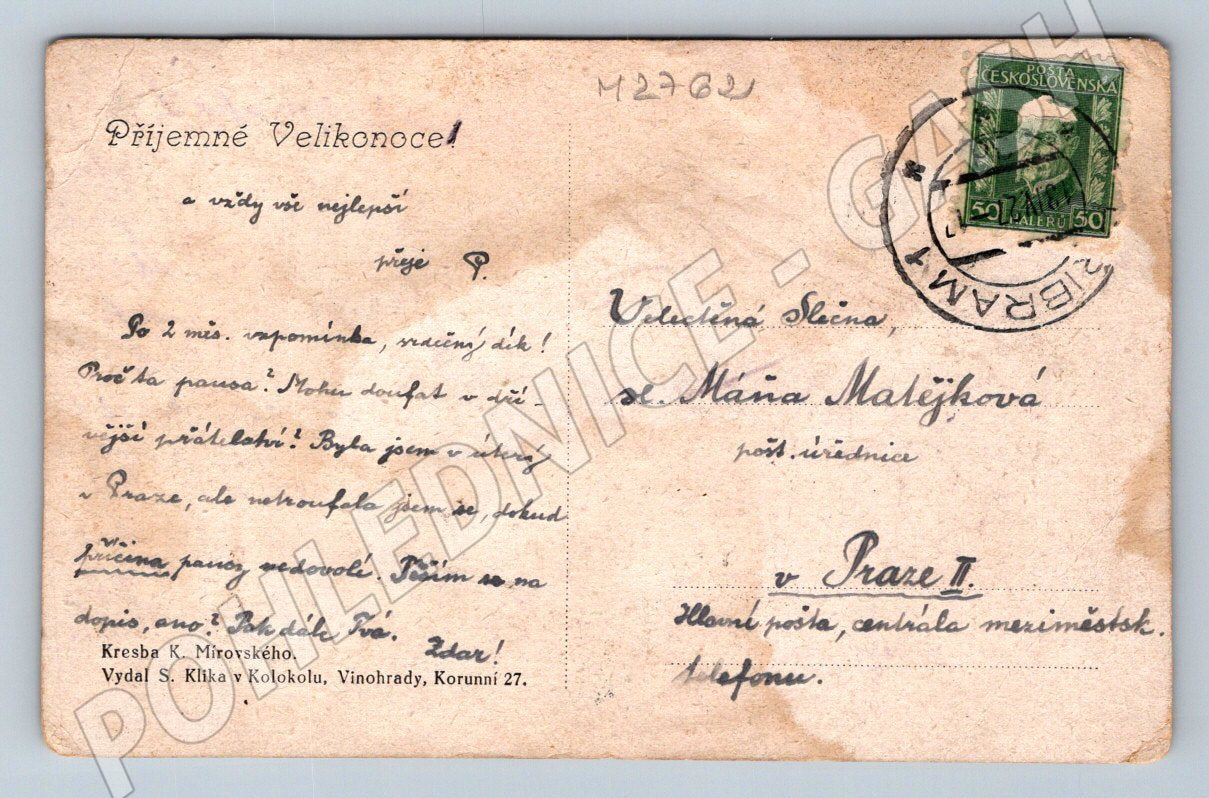 M2762
Příjemné Velikonoce!
a vždy vše nejlepší
přeje P.
Po 2 měs. vzpomínka, srdečný dík!
Proč ta pausa? Mohu doufat v dří-
vější přátelství? Byla jsem v úterý
v Praze, ale netroufala jsem se, dokud
příčina pausy nedovolí. Těším se na
dopis, ano? Pak dále Tvá.
Zdar!
Kresba K. Mírovského.
Vydal S. Klika v Kolokolu, Vinohrady, Korunní 27.
POŠTA
ČESKOSLOVENSKÁ
50 HALÉŘŮ 50
PŘÍBRAM 1
Velectěná Slečna,
sl. Máňa Matějková
pošt. úřednice
v Praze II.
Hlavní pošta, centrála meziměstsk.
telefonu.
POHLEDNICE - GASH